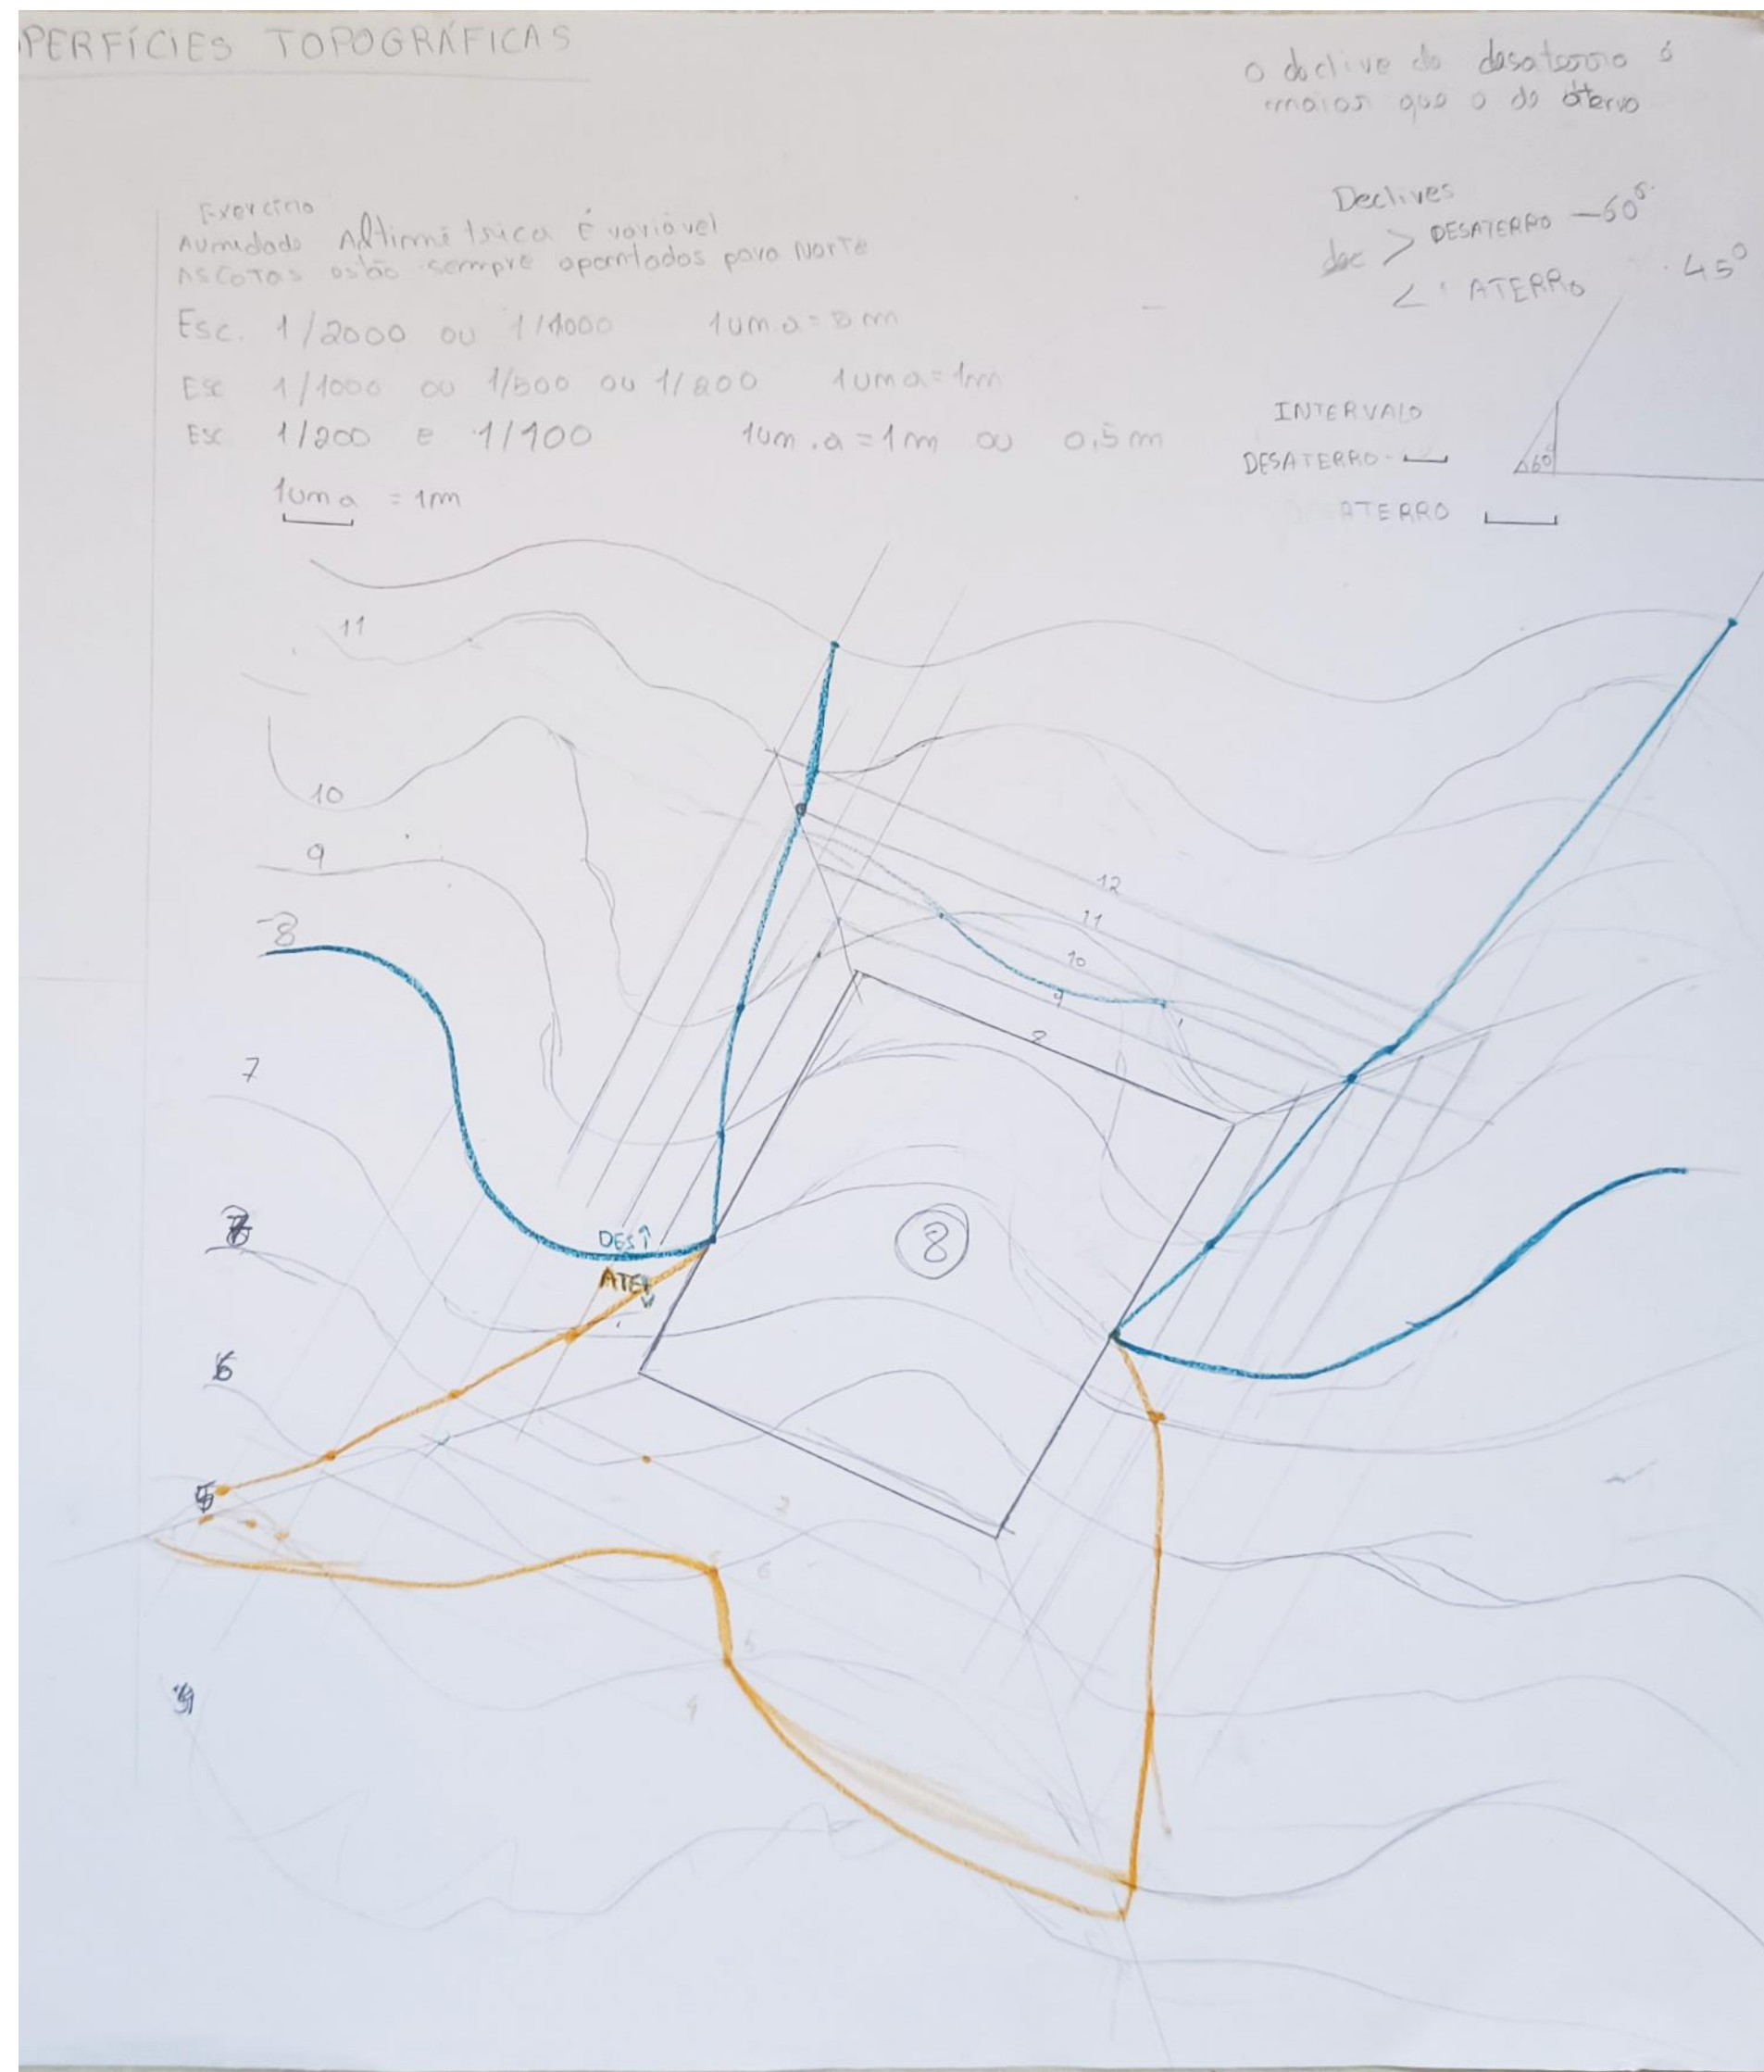 PERFÍCIES TOPOGRÁFICAS
o declive do desaterro é
maior que o do aterro
Exercício
Aunidade Altimétrica É variável
As COTAS estão sempre apontadas para Norte
Esc. 1/2000 ou 1/1000 1um.a=5m
Esc 1/1000 ou 1/500 ou 1/200 1uma=1m
Esc 1/200 e 1/100 1um.a=1m ou 0,5m
1uma = 1m
Declives
dec > DESATERRO - 60°
< ATERRO 45°
INTERVALO
DESATERRO
60°
ATERRO
11
10
9
8
12
11
10
9
8
7
DES↑
8
ATE↓
7
6
5
7
6
5
4